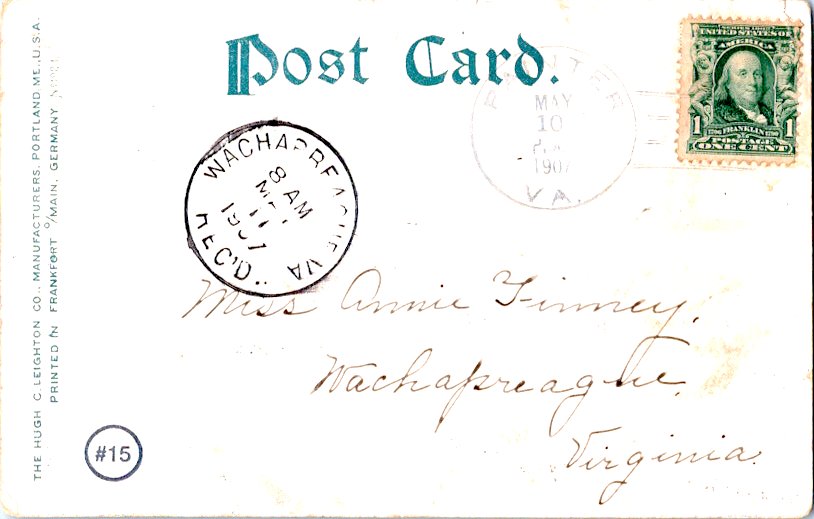 Post Card.
SERIES 1902
UNITED STATES OF
AMERICA
1 1706 FRANKLIN 1790 1
POSTAGE
ONE CENT
PAINTER
MAY
10
1907
VA.
WACHAPREAGUE VA
8 AM
11
1907
REC'D.
Miss Annie Finney,
Wachapreague,
Virginia.
THE HUGH C. LEIGHTON CO., MANUFACTURERS, PORTLAND, ME., U.S.A.
PRINTED IN FRANKFORT O/MAIN, GERMANY
#15